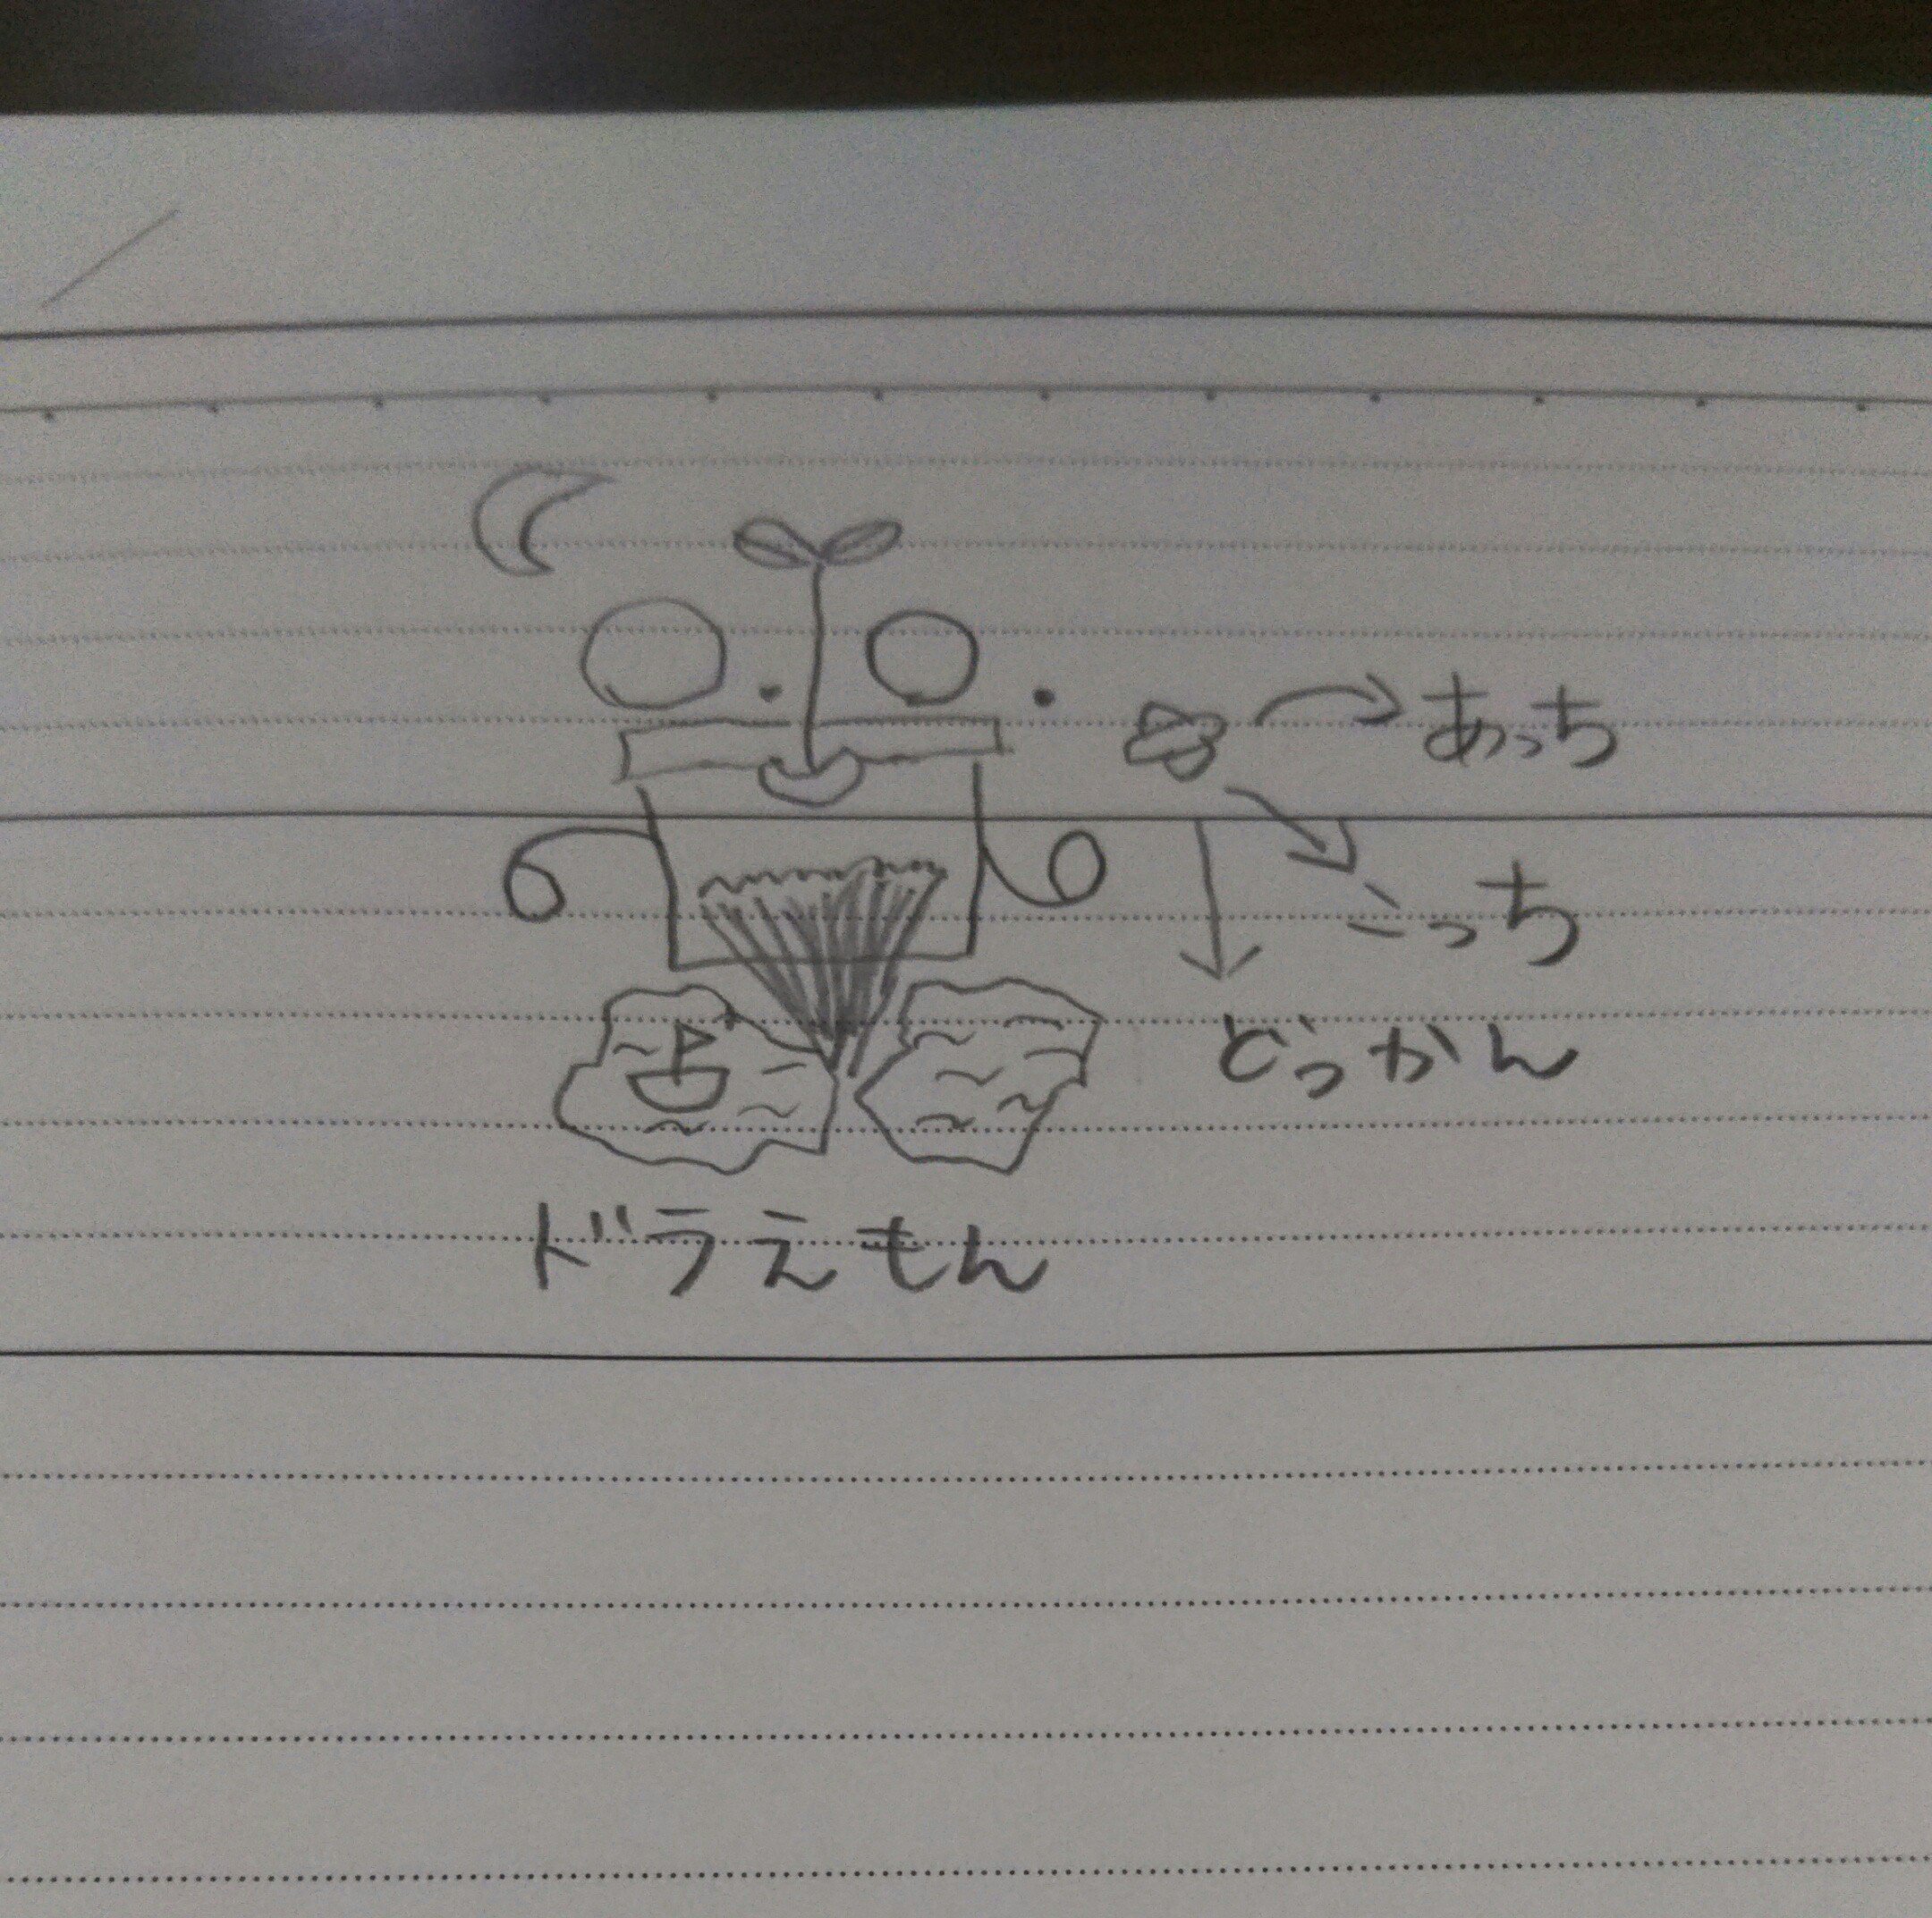 あっち
こっち
どっかん
ドラえもん